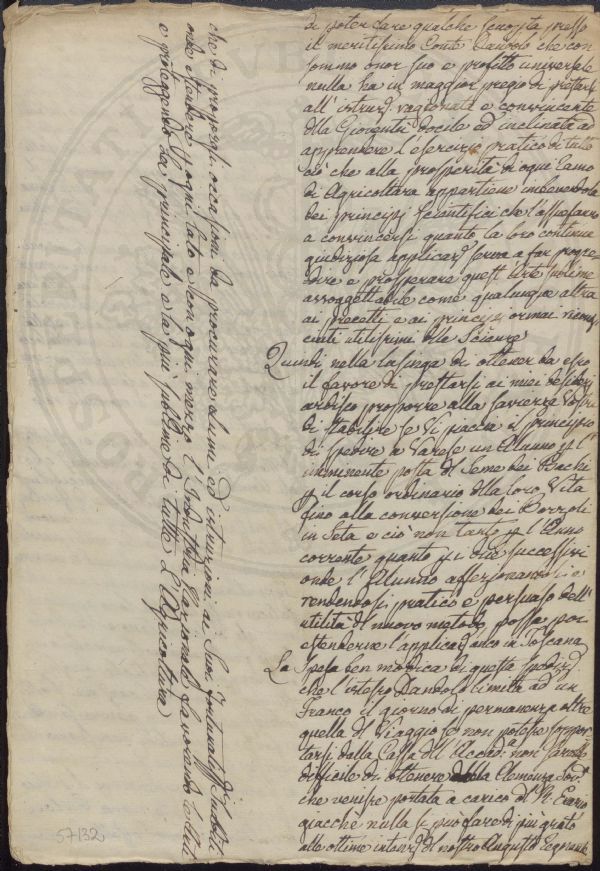 di poter dare qualche scossa presso
il meritissimo Conte Dandolo che con
sommo onor suo e profitto universale
nulla ha in maggior pregio di prestarsi
all'istruz.e ragionata e convincente
dlla Gioventù docile ed inclinata ad
apprendere l'esercizio pratico di tutto
ciò che alla prosperità di ogni ramo
di Agricoltura appartiene imbevendola
dei principj scientifici che l'
a convincersi quanto la loro continua
giudiziosa applicaz.e serva a far progre
dire e prosperare quest'arte sublime
assoggettabile come qualunque altra
ai precetti e ai principj ormai ricono
sciuti utilissimi dlle Scienze
Quindi nella lusinga di ottener da esso
il favore di prestarsi ai miei desiderj
ardisco proporre alla saviezza Vostra
di stabilire se Vi piaccia il principio
di spedire a Varese un Alunno p l'
imminente posta dl Seme dei Bachi
p il corso ordinario dlla loro Vita
fino alla conversione dei Bozzoli
in Seta e ciò non tanto p l'Anno
corrente quanto p i due successivi
onde l'Alunno affezionandosi e
rendendosi pratico e persuaso dell'
utilità dl nuovo metodo possa poi
estenderne l'applicaz.e anco in Toscana
La Spesa ben modica di questa spediz.e
che l'istesso Dandolo limita ad un
Franco il giorno di permanenza oltre
quella dl Viaggio se non potesse soppor
tarsi dalla Cassa dll'Accad.a non sarebbe
difficile di ottenere dalla Clemenza Sov.a
che venisse portata a carico dl R. Erario
giacchè nulla si può fare di più grato
alle ottime intenz.i dl nostro Augusto Regnante
che di proporgli occasioni da procurare lumi ed istruzioni ai Suoi fortunatiss.i Sudditi
onde estendere p ogni lato e con ogni mezzo l'Industria Nazionale favorendo le Arti
e proteggendo la principale e la più sublime di tutte L'Agricoltura
57132